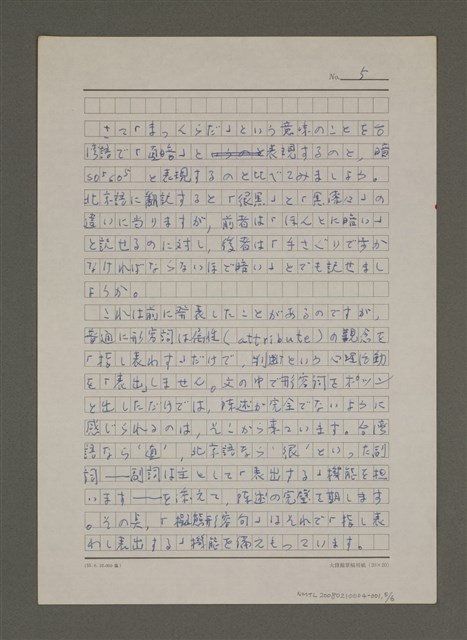 No. 5
さて「まっくらだ」という意味のことを台
湾語で「直暗」と表現するのと,暗
so³so⁵と表現するのと比べてみましょう。
北京語に翻訳すると「很黑」と「黑漆々」の
違いに当りますが,前者は「ほんとに暗い」
と訳せるのに対し,後者は「手さぐりで歩か
なければならないほど暗い」とでも訳せまし
ょうか。
これは前に発表したことがあるのですが,
普通に形容詞は属性(attribute)の観念を
「指し表わす」だけで,判断という心理活動
を「表出」しません。文の中で形容詞をポツン
と出しただけでは,陳述が完全でないように
感じられるのは,そこから来ています。台湾
語なら'直',北京語なら'很'といった副
詞——副詞は主として「表出する」機能を担
います——を添えて,陳述の完璧を期します
。その点,「擬態形容句」はそれで「指し表
わし表出する」機能を備えもっています。
(20×20)